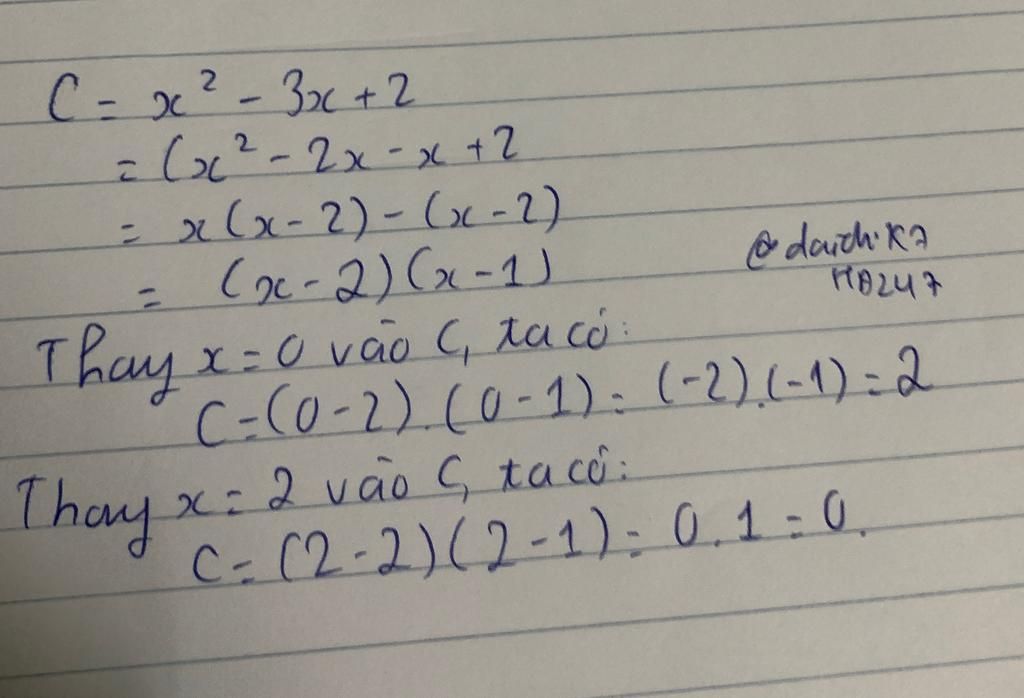 C = x² - 3x + 2
= (x² - 2x - x + 2
= x(x - 2) - (x - 2)
= (x - 2)(x - 1)
@daich.K7
HB247
Thay x = 0 vào C, ta có:
C = (0 - 2).(0 - 1) = (-2).(-1) = 2
Thay x = 2 vào C, ta có:
C = (2 - 2)(2 - 1) = 0.1 = 0.